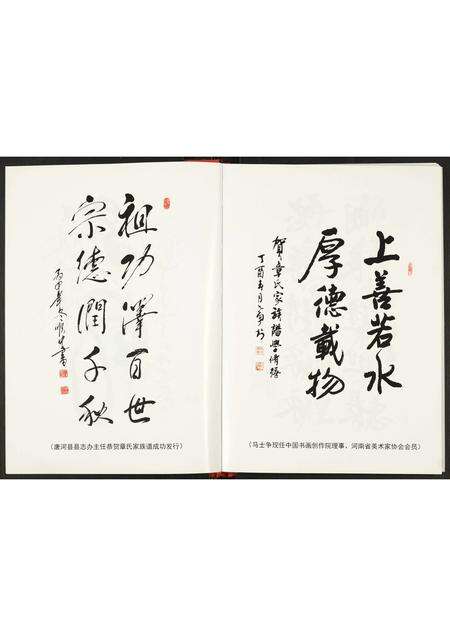 上善若水
厚德載物
賀章氏家族譜
丁酉年
（马士争现任中国书画创作院理事、河南省美术家协会会员）
祖功澤百世
宗德潤千秋
丙申年冬
（唐河县县志办主任恭贺章氏家族谱成功发行）